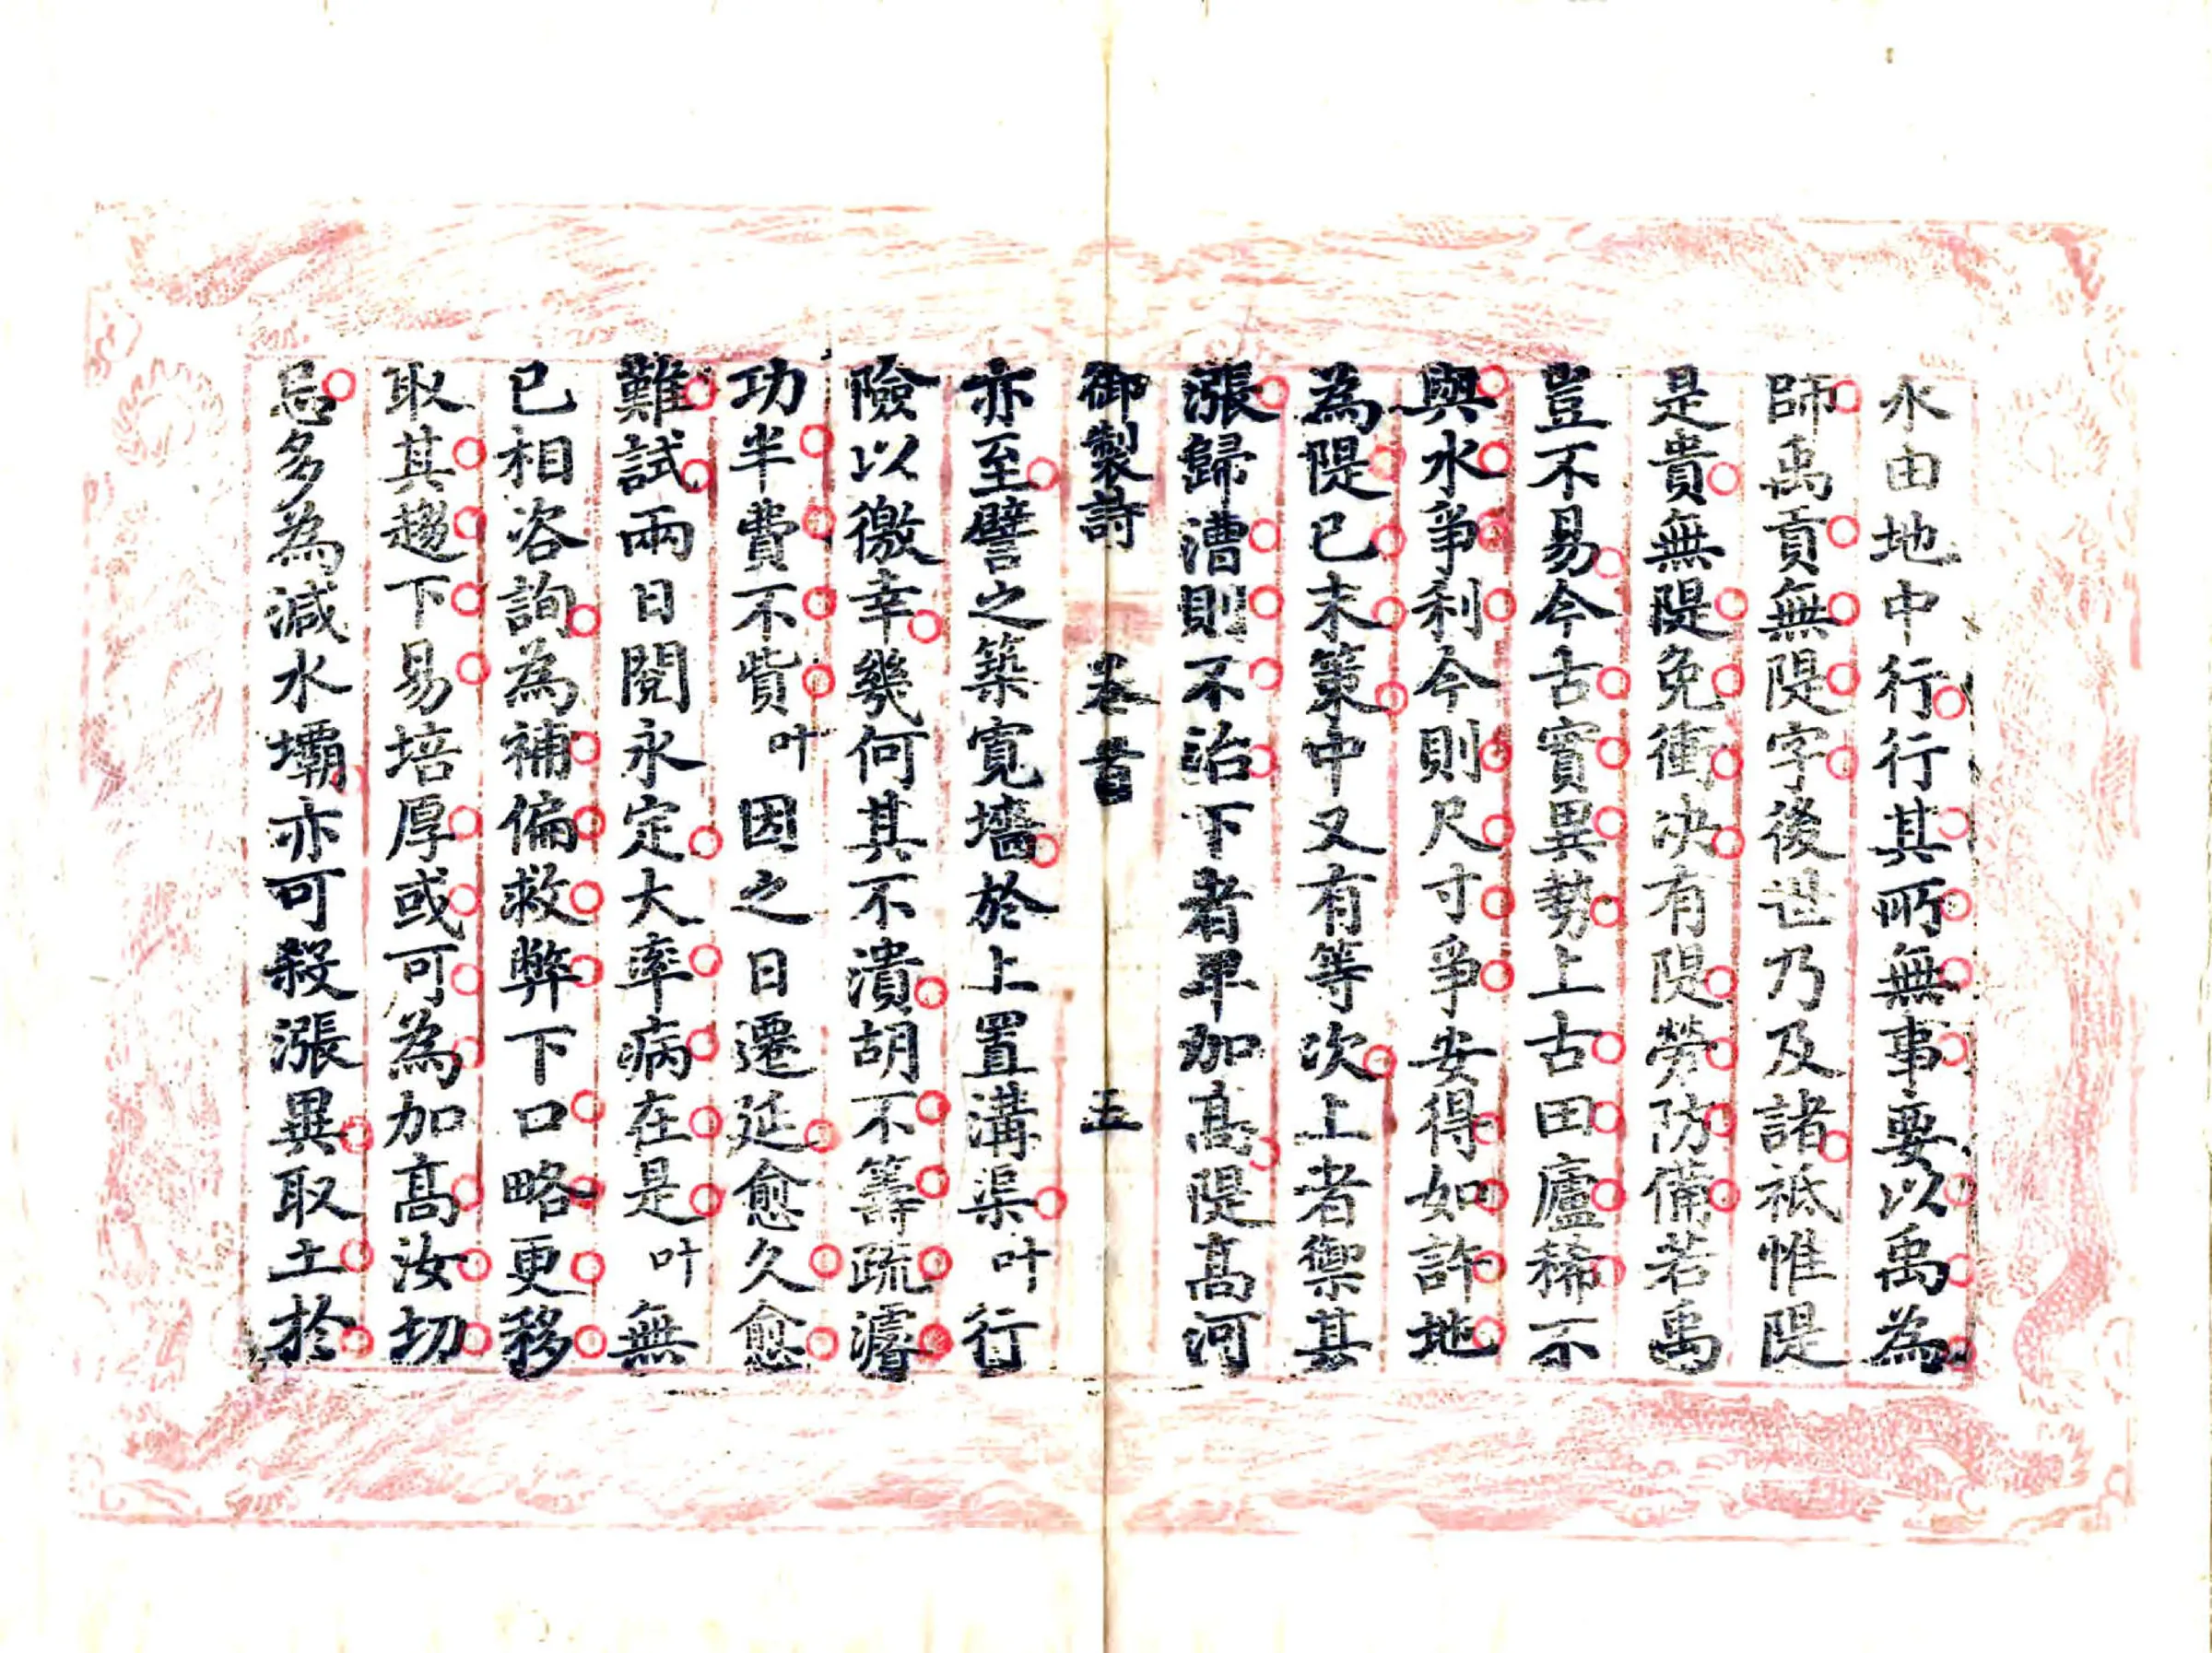 水由地中行行其所無事要以禹為
師禹貢無隄字後世乃及諸祗惟隄
是貴無隄免衝决有隄勞防備若禹
豈不易今古實異勢上古田廬稀不
與水爭利今則尺寸爭安得如許地
為隄已末策中又有等次上者禦其
漲歸漕則不治下者卑加高隄高河
御製詩 卷首 五
亦至譬之築寬墻於上置溝渠叶行
險以徼幸幾何其不潰胡不籌疏濬
功半費不貲叶因之日遷延愈久愈
難試兩日閱永定大率病在是叶無
已相咨詢為補偏救弊下口略更移
取其趨下易培厚或可為加高汝切
忌多為減水壩亦可殺漲異取土於